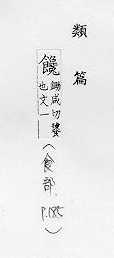 類篇
饞 鋤咸切
也文一
(食部. P.185)